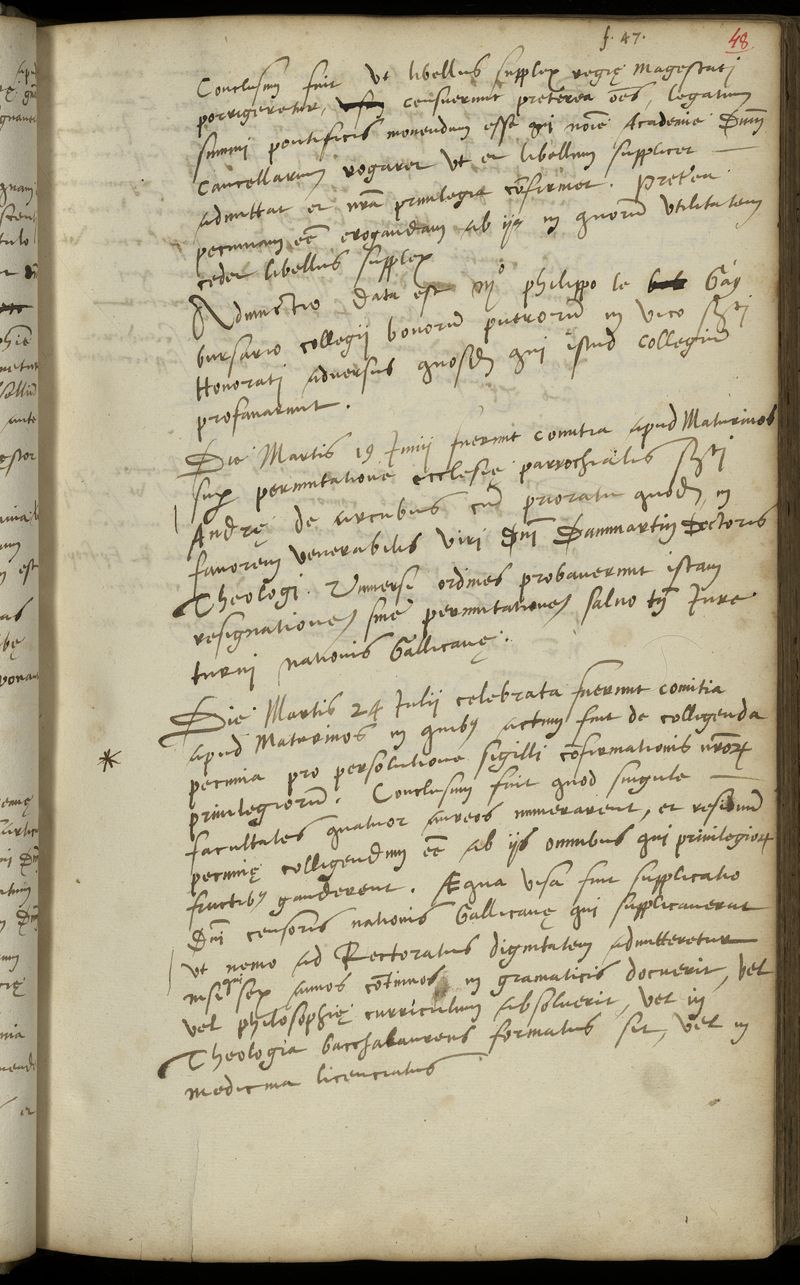 f. 47.
48
Conclusum fuit ut libellus supplex regię Magestatj
porrigeretur, censuerunt preterea oēs, legatum
summi pontificis monendum esse qui noīe Academie Dnūm
Cancellarium rogaret ut et libellum supplicet
admittat et nrā privilegia cōfirmet. Preterea
pecuniam eē erogandam ab ijs in quorū utilitatem
cedet libellus supplex
Admonitio data est mro philippo le Gay
bursario collegij bonorū puerorū in vico Sti
Honorati adversus quosdā qui istud collegiū
profanarunt.
Die Martis 19 Junij fuerunt comitia apud Maturinos
sup permutatione ecclesię parrochialis Sti
Andrę de arcubus cū prioratu quodā in
favorem venerabilis viri Dnī Dammartin Doctoris
Theologi. Universi ordines probaverunt istam
resignationē sive permutationē salvo tn̄ Jure
turni nationis Gallicanę.
Die Martis 24 Julij celebrata fuerunt comitia
apud Maturinos in quibus actum fuit de colligenda
pecunia pro persolutione sigilli cōfirmationis nrōrum
privilegiorū. Conclusum fuit quod singule
facultates quatuor aureos numerarent, et residuū
pecunię colligendum eē ab ijs omnibus qui privilegiorum
fructibus gauderent. Æqua visa fuit supplicatio
Dnī censoris nationis Gallicanę qui supplicaverat
ut nemo ad Rectoratus dignitatem admitteretur
nisi qui sex annos cōtinuos in gramaticis docuerit, vel
vel philosophię curriculum absolverit, vel in
Theologia bacchalaureus formatus sit, vel in
medicina licenciatus